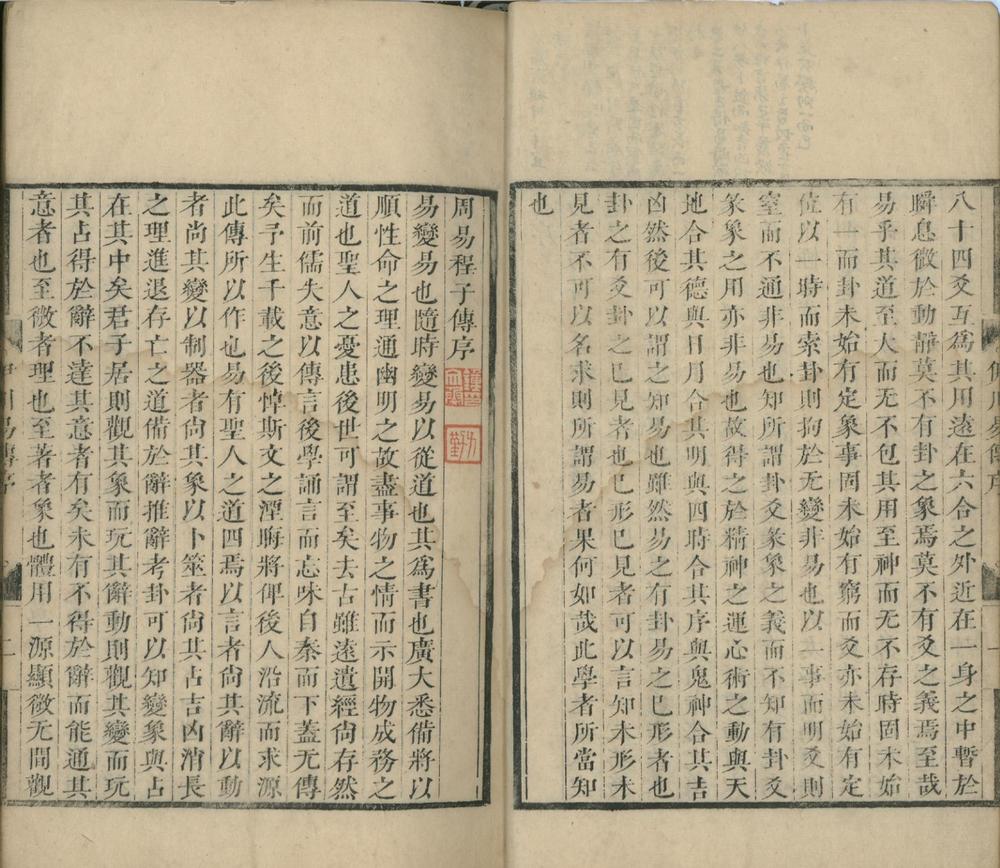 八十四爻互爲其用遠在六合之外近在一身之中暫於
瞬息微於動靜莫不有卦之象焉莫不有爻之義焉至哉
易乎其道至大而无不包其用至神而无不存時固未始
有一而卦未始有定象事固未始有窮而爻亦未始有定
位以一時而索卦則拘於无變非易也以一事而明爻則
窒而不通非易也知所謂卦爻彖象之義而不知有卦爻
彖象之用亦非易也故得之於精神之運心術之動與天
地合其德與日月合其明與四時合其序與鬼神合其吉
凶然後可以謂之知易也雖然易之有卦易之已形者也
卦之有爻卦之已見者也已形已見者可以言知未形未
見者不可以名求則所謂易者果何如哉此學者所當知
也
周易程子傳序
易變易也隨時變易以從道也其爲書也廣大悉備將以
順性命之理通幽明之故盡事物之情而示開物成務之
道也聖人之憂患後世可謂至矣去古雖遠遺經尙存然
而前儒失意以傳言後學誦言而忘味自秦而下蓋无傳
矣予生千載之後悼斯文之湮晦將俾後人沿流而求源
此傳所以作也易有聖人之道四焉以言者尙其辭以動
者尙其變以制器者尙其象以卜筮者尙其占吉凶消長
之理進退存亡之道備於辭推辭考卦可以知變象與占
在其中矣君子居則觀其象而玩其辭動則觀其變而玩
其占得於辭不達其意者有矣未有不得於辭而能通其
意者也至微者理也至著者象也體用一源顯微无間觀
伊川易傳序
二